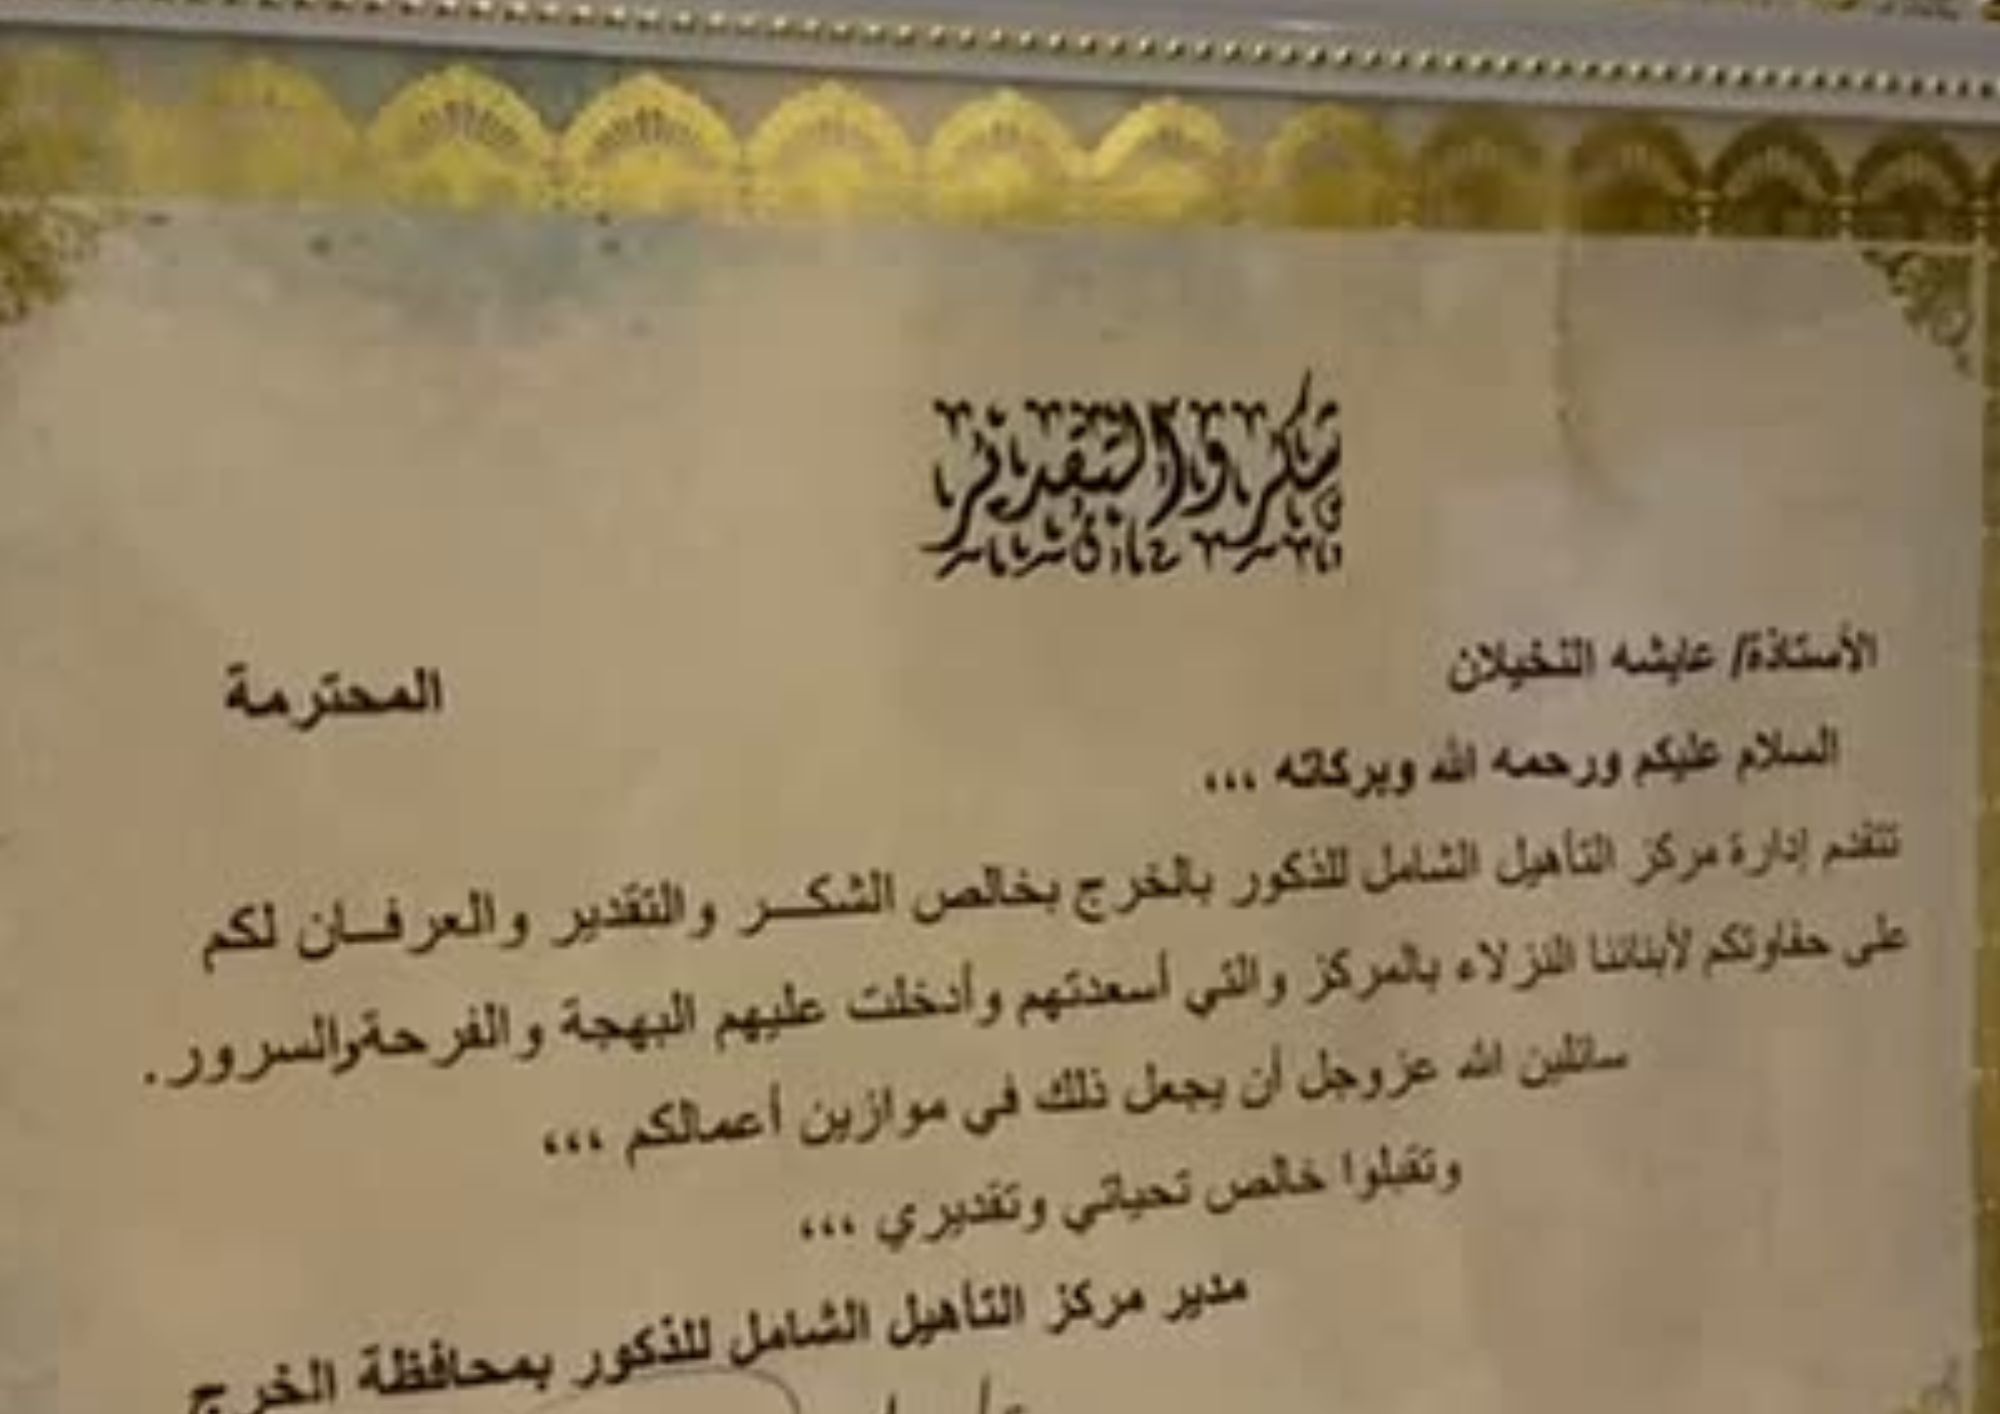 شكر والتقدير
الأستاذة/ عايشه النخيلان المحترمة
السلام عليكم ورحمه الله وبركاته ،،،
تتقدم إدارة مركز التأهيل الشامل للذكور بالخرج بخالص الشكـــر والتقدير والعرفــان لكم
على حفاوتكم لأبنائنا النزلاء بالمركز والتي أسعدتهم وأدخلت عليهم البهجة والفرحة والسرور .
سائلين الله عزوجل أن يجعل ذلك في موازين أعمالكم ،،،
وتقبلوا خالص تحياتي وتقديري ،،،
مدير مركز التأهيل الشامل للذكور بمحافظة الخرج